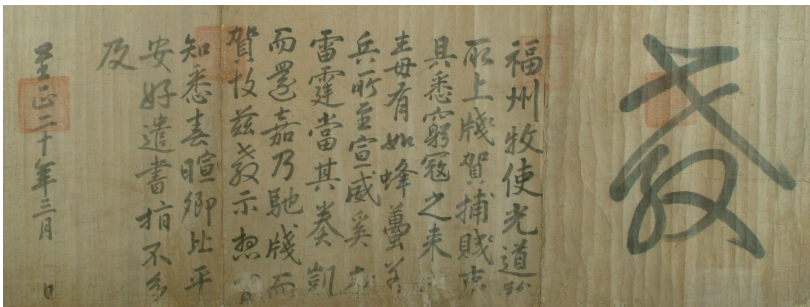 敎
福州牧使光道
所上牋賀捕賊事
具悉窮寇之来
毒有如蜂蠆
兵所至宣威奚
雷霆當其奏凱
而還嘉乃馳牋而
賀故玆敎示想宜
知悉春暄卿比平
安好遣書指不多
及
至正二十年三月 日